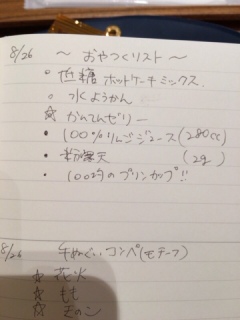 8/26 ～ おやつくリスト ～
○ 低糖ホットケーキミックス.
○ 水ようかん
☆ かんてんゼリー
• 100%りんごジュース(280cc)
• 粉寒天 (2g)
• 100均のプリンカップ!!
8/26 手ぬぐいコンペ(モチーフ)
☆ 花火
☆ もも
☆